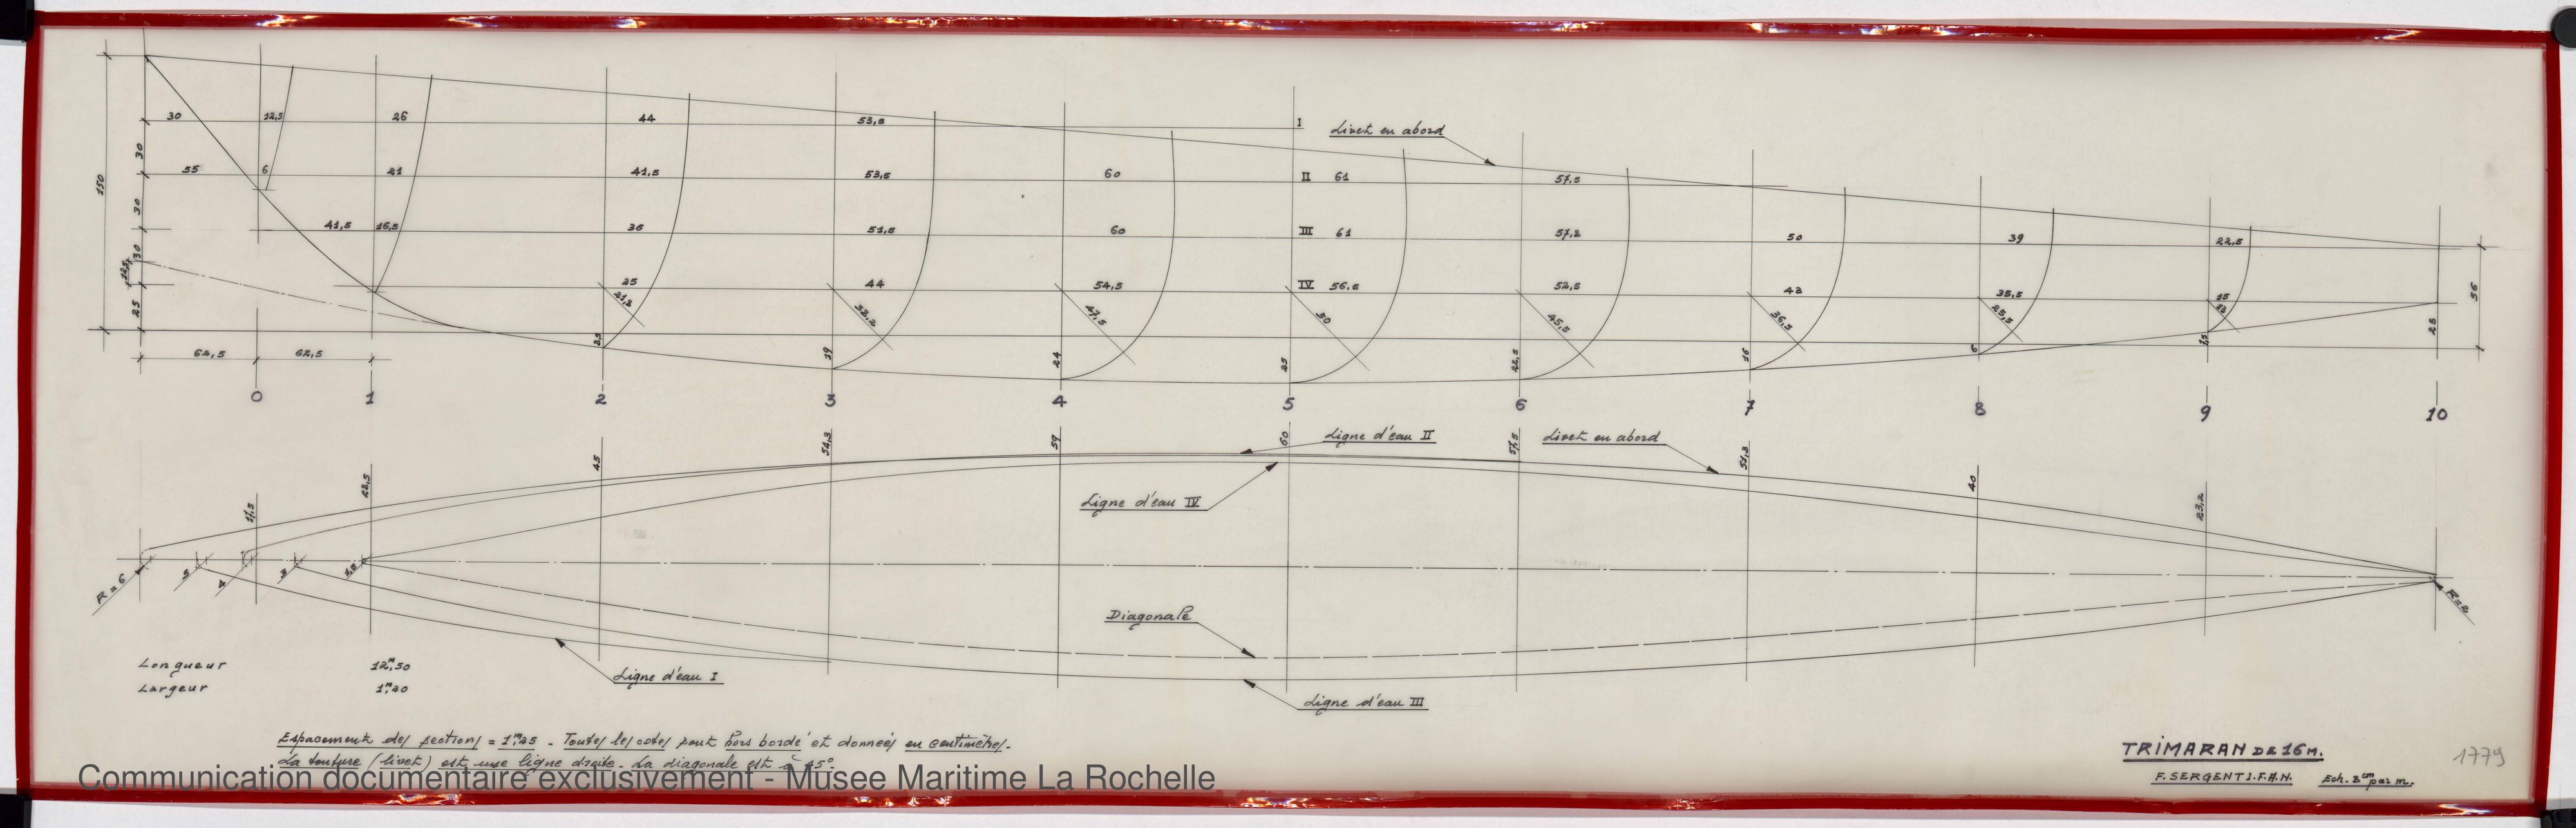 30 12,5 26 44 53,5 I Livet en abord
150
30
55 6 21 41,5 53,5 60 II 61 57,5
30
41,5 16,5 36 51,5 60 III 61 57,2 50 39 22,5
30
25 44 54,5 IV 56,5 52,5 43 35,5 15
21,2 47,5 50 45,5 36,5 25,5
25
19 24 25 22,5 16 6 25 56
62,5 62,5
0 1 2 3 4 5 6 7 8 9 10
45 54,3 59 60 57,5 51,3 40 23,2
Ligne d'eau II Livet en abord
Ligne d'eau IV
R=6 5 4 3 R=2
Diagonale
Ligne d'eau I
Ligne d'eau III
Longueur 12m,50
Largeur 1m,20
Espacement des sections = 1m,25 - Toutes les cotes sont hors bordé et données en centimètres.
La tonture (livet) est une ligne droite. La diagonale est à 45°
Communication documentaire exclusivement - Musee Maritime La Rochelle
TRIMARAN DE 16 M.
F. SERGENT I.F.A.N. Ech. 8 cm par m.
1779